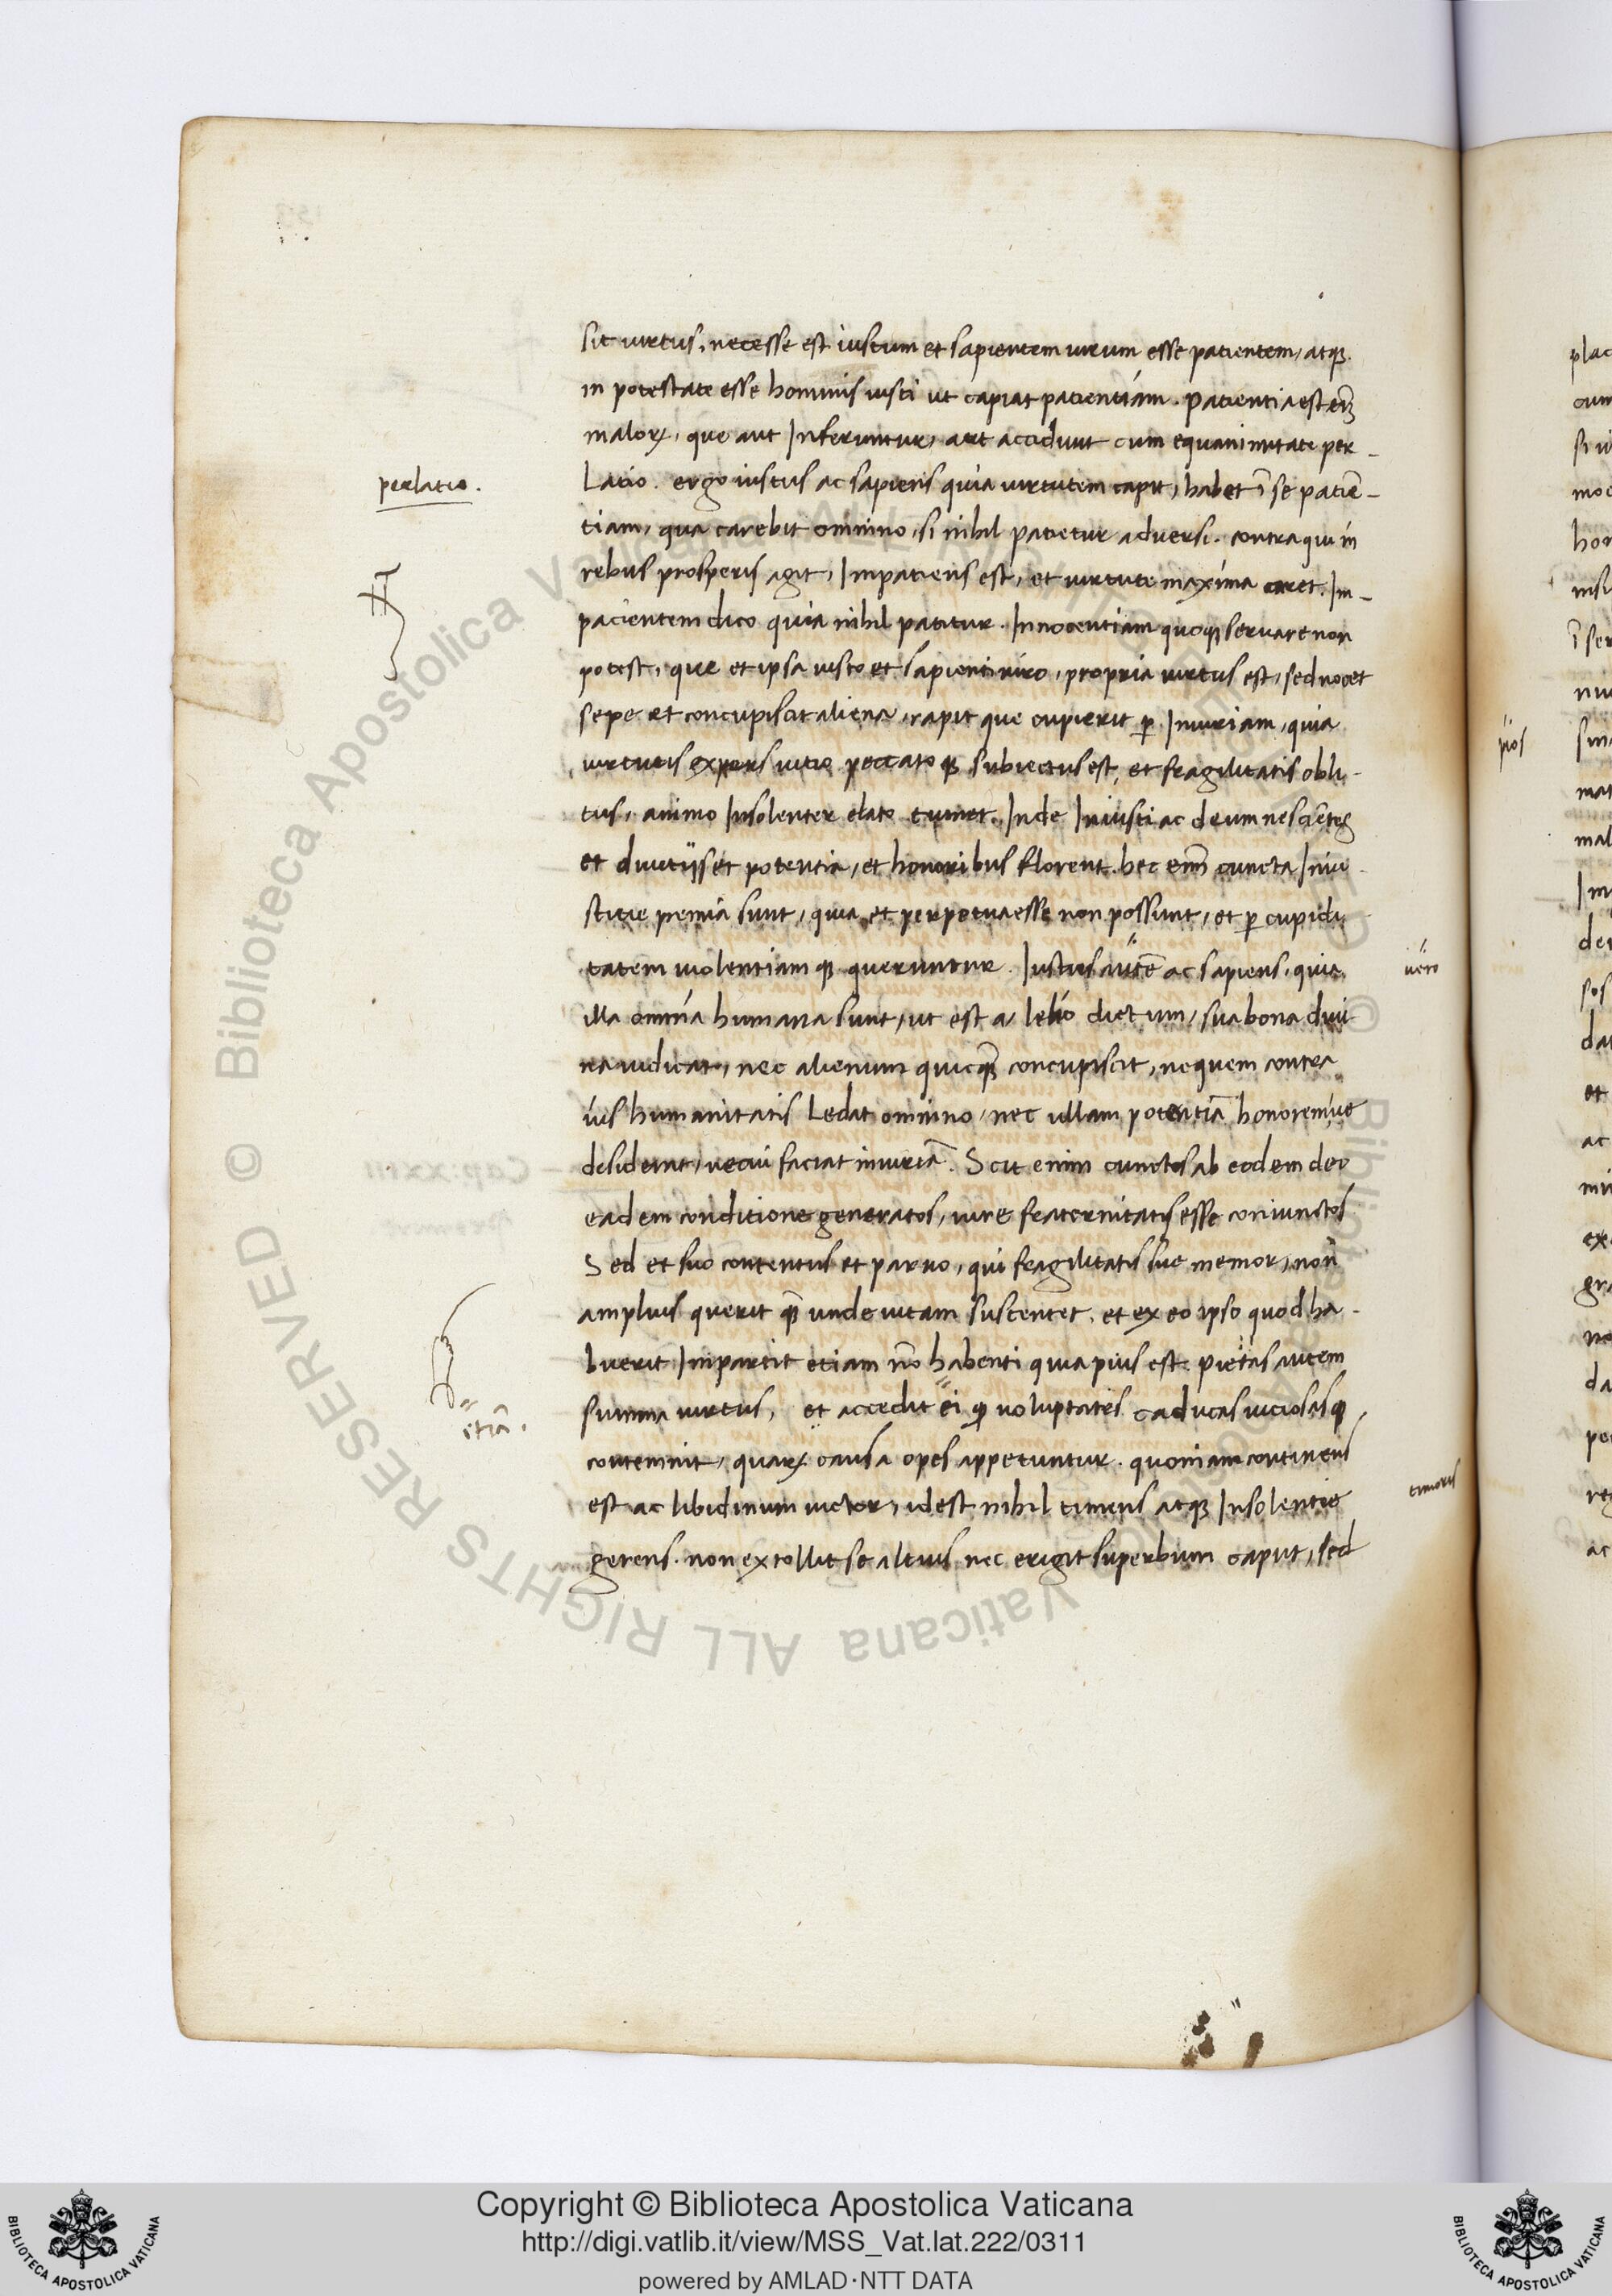 sit uirtus, necesse est iustum et sapientem uirum esse patientem, atqȝ
in potestate esse hominis iusti ut capiat patientiam. patientia est eni͂
maloꝝ, que aut Inferuntur, aut accidunt cum equanimitate per-
perlatio.
Latio. ergo iustus ac sapiens quia uirtutem capit, habet ī se patiē-
tiam, qua carebit omnino, si nihil patietur aduersi. contra qui in
rebus prosperis agit, Impatiens est, et uirtute maxima caret. Im-
pacientem dico quia nihil patitur. Innocentiam quoqȝ seruare non
potest, que et ipsa iusto et sapienti uiro, propria uirtus est, sed nocet
sepe et concupiscit aliena, rapit que cupierit ꝑ Iniuriam, quia
uirtutis expers uitio peccato qȝ subiectus est, et fragilitatis obli-
tus, animo Insolenter elato tumet. Inde Iniusti ac deum nesciētes
et diuitijs et potentia, et honoribus florent. hec eni͂ cuncta Iniu-
stitie premia sunt, quia et perpetua esse non possunt, et ꝑ cupidi-
tatem uiolentiam qȝ queruntur. Iustus autē ac sapiens, quia
uero
illa omnia humana sunt, ut est a lelio dictum, sua bona diui-
na iudicat, nec alienum quicq̄ȝ concupiscit, ne quem contra
ius humanitatis Ledat omnino, nec ullam potentiā honoremue
desiderat, ne cui faciat iniuriā. Scit enim cunctos ab eodem deo
eadem conditione generatos, iure fraternitatis esse coniunctos
Sed et suo contentus et paruo, qui fragilitatis sue memor, non
amplius querit q̄ȝ unde uitam sustentet, et ex eo ipso quod ha-
buerit Impartit etiam nō habenti quia pius est. pietas autem
summa uirtus, et accedit ei qꝫ uoluptates caducas uiciosas qȝ
etiā.
contemnit, quaꝝ causa opes appetuntur. quoniam continens
est ac libidinum uictor, idest nihil timens atqȝ Insolentie
timoris
gerens. non extollit se altius nec erigit superbum caput, sed
plac
cum
si ui
moc
hom
insi
ī ser
niu
pios
sin
mat
mal
Im
der
pos
dat
et
ac
min
exc
gra
no
da
pe
reg
ac
Copyright © Biblioteca Apostolica Vaticana
http://digi.vatlib.it/view/MSS_Vat.lat.222/0311
powered by AMLAD·NTT DATA
BIBLIOTECA APOSTOLICA VATICANA
BIBLIOTECA APOSTOLICA VATICANA